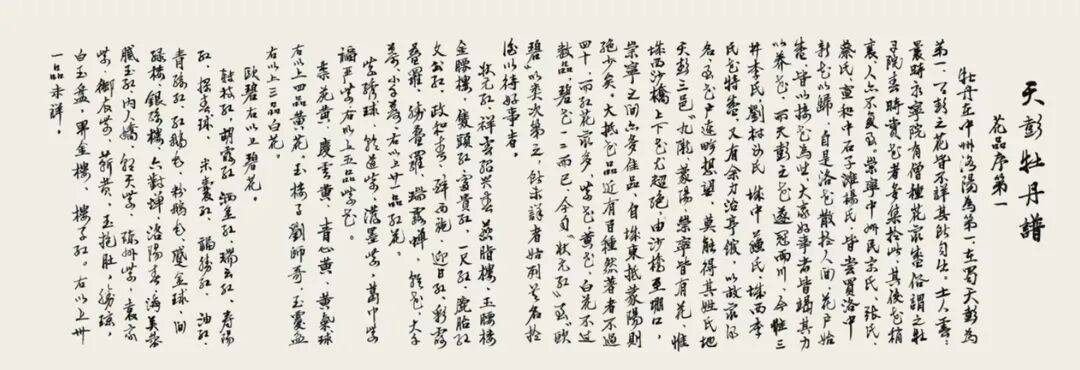 天彭牡丹譜
花品序第一
牡丹在中州洛陽為第一,在蜀天彭為
第一,天彭之花皆不詳其所自出。士人云:
曩時永寧院有僧種花最盛,俗謂之牡
丹院,春時賞花者多集於此,其後花稍
衰,人亦不復至。崇寧中州民宋氏、張氏、
蔡氏,宣和中石子灘楊氏,皆嘗買洛中
新花以歸,自是洛花散於人間,花戶始
盛,皆以接花為業,大家好事者皆竭其力
以養花,而天彭之花遂冠兩川,今惟三
井李氏、劉村毋氏、城中蘇氏、城西李
氏花特盛,又有餘力治亭館,以故最得
名,至花戶連畛相望,莫能得其姓氏也
天彭三邑“九隴、濛陽、崇寧皆有花,惟
城西沙橋上下花尤超絕,由沙橋至堋口,
崇寧之間亦多佳品,自城東抵濛陽則
絕少矣。大抵花品近百種,然著者不過
四十,而紅花最多,紫花、黃花、白花不過
數品,碧花一二而已,今自“狀元紅”至“歐
碧”以類次第之,所未詳者姑列其名於
後以待好事者。
狀元紅、祥雲、紹興春、燕脂樓、玉腰樓
金腰樓、雙頭紅、富貴紅、一尺紅、鹿胎紅
文公紅、政和春、醉西施、迎日紅、彩霞
疊羅、勝疊羅、瑞露蟬、乾花、大千
葉、小千葉、右以上廿一品紅花。
紫綉球、乾道紫、潑墨紫、葛巾紫
福嚴紫、右以上五品紫花。
禁苑黃、慶雲黃、青心黃、黃氣球
右以上四品黃花、玉樓子、劉師哥、玉覆盂
右以上三品白花。
歐碧右以上碧花。
轉枝紅、胡霞紅、洒金紅、瑞雲紅、壽陽
紅、探春球、米囊紅、福勝紅、油紅、
青絲紅、紅鵝毛、粉鵝毛、蹙金球、間
綠樓、銀絲樓、六對蟬、洛陽春、海芙蓉
膩玉紅、內人嬌、朝天紫、陳州紫、袁家
紫、御衣紫、靳黃、玉抱肚、勝瓊、
白玉盤、界金樓、樓子紅。右以上卅
一品未詳。